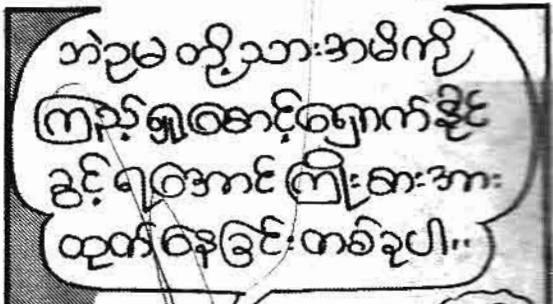 ဘဲဥမ တို့သားအမိကို
ကြည့်ရှုစောင့်ရှောက်နိုင်
ခွင့်ရအောင် ကြိုးစားအား
ထုတ်နေခြင်းတစ်ခုပါ။